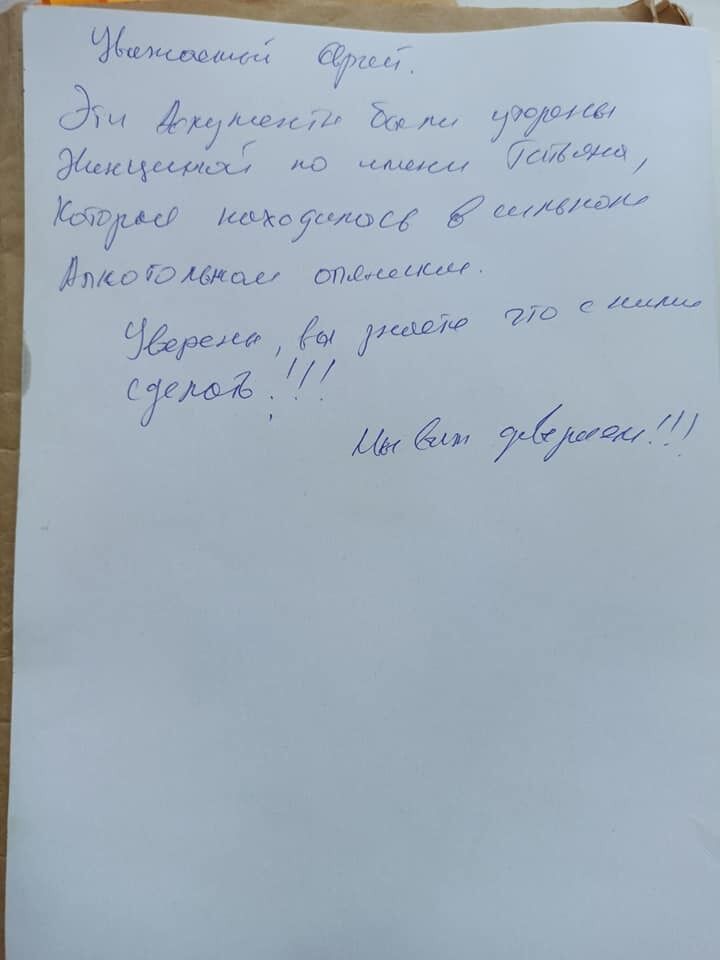 Уважаемый Сергей.
Эти документы были утеряны
Женщиной по имени Татьяна,
Которая находилась в сильном
Алкогольном опянении.
Уверены, вы знаете что с ними
сделать!!!
Мы вам доверяем!!!